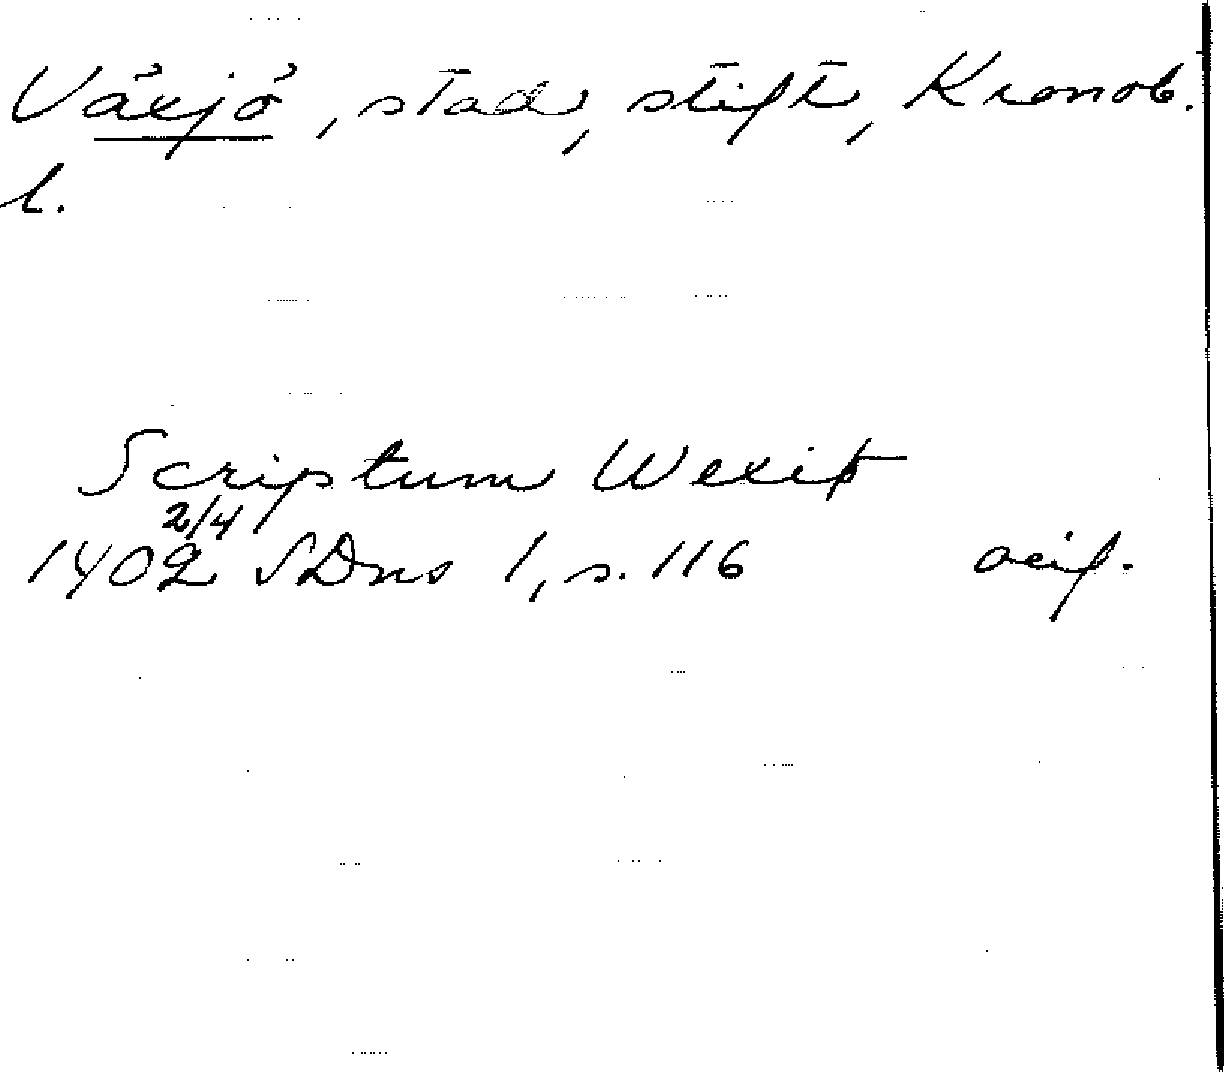 Växjö, stad, stift, Kronob.
l.
Scriptum Wexiø
2/4
1402 SDns 1, s. 116 avsk.